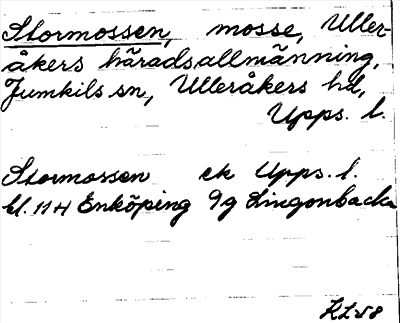 Stormossen, mosse, Uller-
åkers häradsallmänning,
Jumkils sn, Ulleråkers hd,
Upps. l.
Stormossen ek Upps. l.
bl. 11H Enköping 9g Lingonbacka